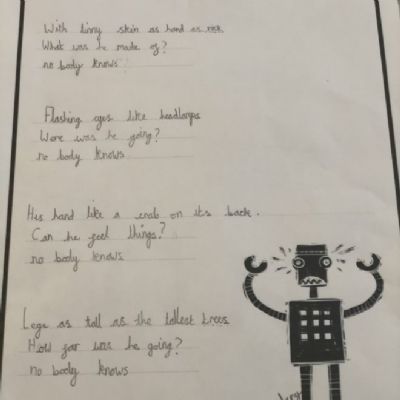 With tinny skin as hard as risk
What was he made of?
no body knows
Flashing eyes like headlamps
Were was he going?
no body knows
His hand like a crab on its back.
Can he feel things?
no body knows
Legs as tall as the tallest trees
How far was he going?
no body knows